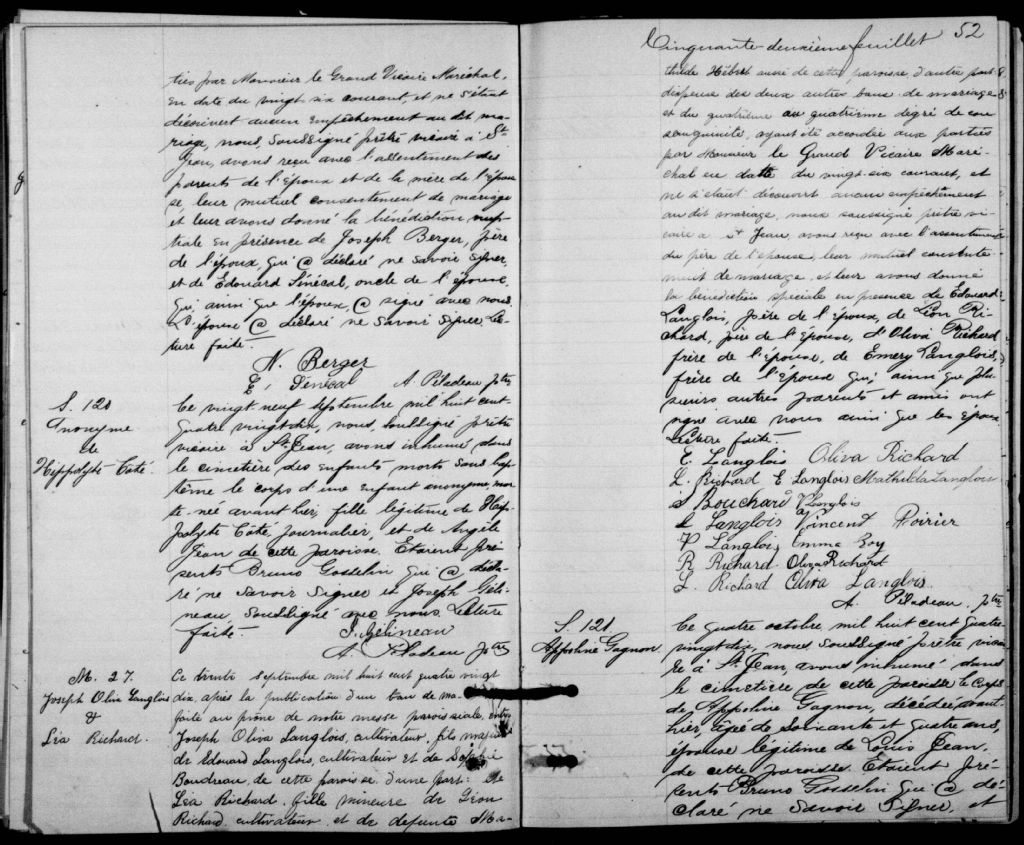 ties par Monsieur le Grand Vicaire Maréchal,
en date du vingt six courant, et ne s'étant
découvert aucun empêchement au dit ma-
riage, nous, soussigné prêtre vicaire à St
Jean, avons reçu avec l'assentiment des
parents de l'époux et de la mère de l'épou
se, leur mutuel consentement de mariage
et leur avons donné la bénédiction nup-
tiale en présence de Joseph Berger, père
de l'époux, qui @ déclaré ne savoir signer,
et de Edouard Sénécal, oncle de l'épouse,
qui, ainsi que l'époux, @ signé avec nous.
L'épouse @ déclaré ne savoir signer. Lec-
ture faite.
N. Berger
E. Sénécal A. Piladeau ptre
S. 120
Anonyme
de
Hippolyte Côté.
Ce vingt neuf septembre mil huit cent
quatre vingt dix, nous, soussigné prêtre
vicaire à St Jean, avons inhumé dans
le cimetière des enfants morts sans bap-
tême le corps d'une enfant anonyme mor-
te-née avant hier, fille légitime de Hip-
polyte Côté, journalier, et de Angèle
Jean de cette paroisse. Etaient pré-
sents Bruno Gosselin qui @ décla-
ré ne savoir signer et Joseph Géli-
neau soussigné avec nous. Lecture
faite.
J. Gélineau
A. Piladeau ptre
M. 27.
Joseph Oliva Langlois
&
Léa Richard.
Ce trente septembre mil huit cent quatre vingt
dix, après la publication d'un ban de ma-
faite au prône de notre messe paroissiale, entre
Joseph Oliva Langlois, cultivateur, fils majeur
de Edouard Langlois, cultivateur et de Sophie
Boudreau, de cette paroisse d'une part: & de
Léa Richard, fille mineure de Léon
Richard, cultivateur et de defunte Ma-
Cinquante-deuxième feuillet 52
thilde Hébert aussi de cette paroisse, d'autre part
dispense des deux autres bans de mariage
et du quatrième au quatrième degré de con
sanguinité, ayant été accordée aux parties
par Monsieur le Grand Vicaire Maré-
chal en date du vingt-six courant, et
ne s'étant découvert aucun empêchement
au dit mariage, nous soussigné prêtre vi-
caire à St Jean, avons reçu avec l'assentiment
du père de l'épouse, leur mutuel consente-
ment de mariage, et leur avons donné
la bénédiction speciale en presence de Edouard
Langlois, père de l'époux, de Léon Ri-
chard, père de l'épouse, d'Oliva Richard
frère de l'épouse, de Emery Langlois,
frère de l'époux qui, ainsi que plu-
sieurs autres parents et amis ont
signé avec nous ainsi que les époux.
Lecture faite.
E. Langlois Oliva Richard
L. Richard E Langlois Mathilda Langlois
Bouchard Langlois
Langlois Vincend Poirier
P Langlois Emma Roy
R Richard Oliva Richard
L. Richard Oliva Langlois
A. Piladeau. ptre
S. 121.
Appoline Gagnon.
Ce quatre octobre mil huit cent quatre
vingt dix, nous, soussigné prêtre vicai-
re à St Jean, avons inhumé dans
le cimetière de cette paroisse le corps
de Appoline Gagnon, décédée avant
hier, agée de soixante et quatre ans,
épouse légitime de Louis Jean,
de cette paroisse. Etaient pré-
sents Bruno Gosselin qui @ dé-
claré ne savoir signer, et